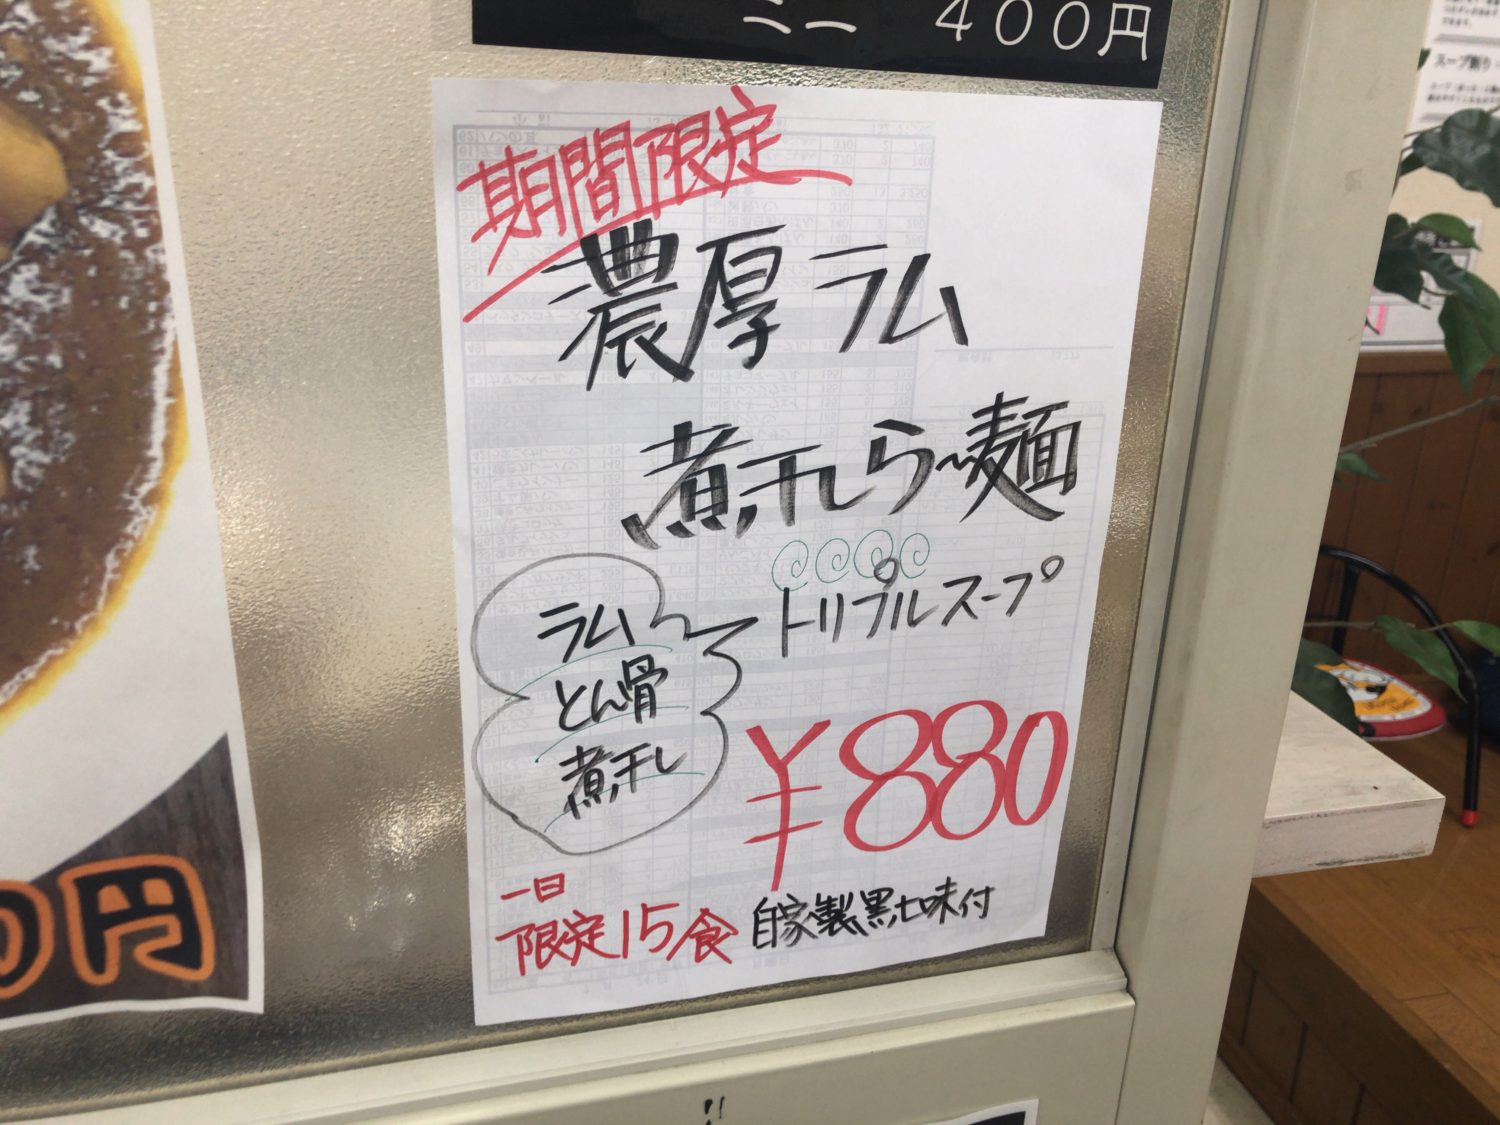 ミニ 400円
期間限定
濃厚ラム
煮干しら〜麺
トリプルスープ
ラム
とん骨
煮干し
¥880
一日
限定15食
自家製黒七味付
0円
スープ割り